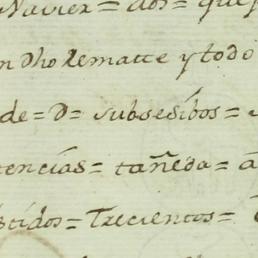 Navier = dos = que
n Dho Rematte y todo
de = D = subsesibos =
tencias = tañeda = a
stidos = Trecientos =